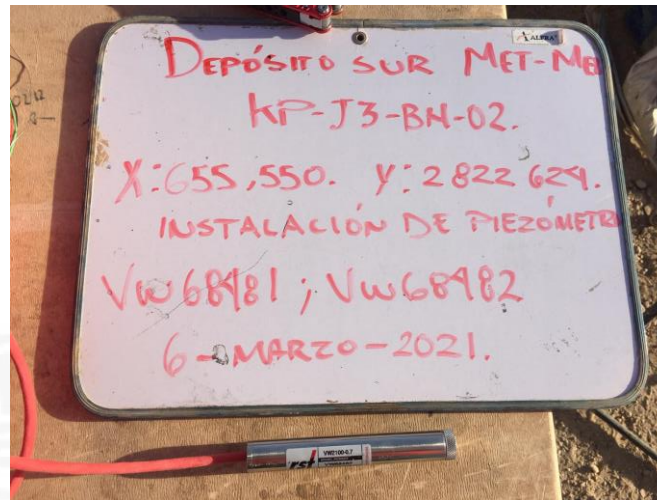 ALPRA
DEPÓSITO SUR MET-MEX
KP-J3-BH-02.
X: 655,550. Y: 2822624.
INSTALACIÓN DE PIEZÓMETRO
VW68481; VW68482
6-MARZO-2021.
rst
VW2100-0.7